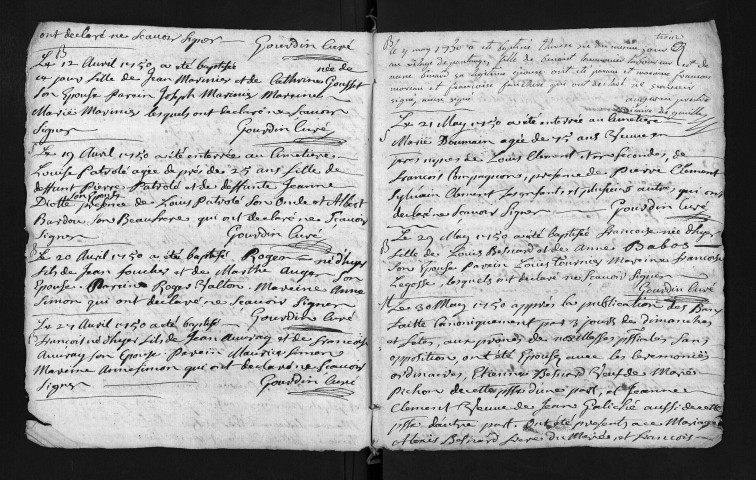 ont declaré ne scavoir signer Gourdin Curé
B
Le 12 Avril 1750 a été baptisée née de
ce jour fille de Jean Marinier et de Catherine Gousset
son Epouse Parein Joseph Mareine
Marie Lesquels ont declaré ne scavoir
signer Gourdin Curé
Le 19 Avril 1750 a été enterrée au Cimetiere
Louise Patrolé agée de près de 25 ans fille de
deffunt Pierre Patrolé et de deffunte Jeanne
son Epoux
presence de Louis Patrolé son Oncle et Albert
Bardou son Beaufrere qui ont declaré ne scavoir
signer Gourdin Curé
B
Le 20 Avril 1750 a été baptisé Roger né d'huy
fils de Jean fouches et de Marthe Auger son
Epouse Parein Roger Vallon Mareine Anne
Simon qui ont declaré ne scavoir signer
Gourdin Curé
Le 21 Avril 1750 a été baptisé
François né d'huy fils de Jean Auvray et de Francoise
Auvray son Epouse Parein Maurice Simon
Mareine Anne Simon qui ont declaré ne scavoir
signer Gourdin Curé
B
Le 9 may 1750 a été baptisée therese née du meme jour
au village de fille de et de
anne sa legitime epouse ont été parein et mareine francois
moreau et francoise qui ont declaré ne scavoir
signer
S
Le 21 May 1750 a été enterrée au Cimetiere
Marie Doumain agée de 75 ans Veuve en
premieres noces de Louis Clement et en secondes, de
François Compagnon, presence de Pierre Clement
Sylvain Clement ses enfants et plusieurs autres qui ont
declaré ne scavoir signer Gourdin Curé
B
Le 29 May 1750 a été baptisée Francoise née d'huy
fille de Louis Besnard et de Anne Babos
son Epouse Parein Louis Tournier Mareine Francoise
Legosse, lesquels ont declaré ne scavoir signer
Gourdin Curé
M
Le 30 May 1750 apprès la publication des Bans
faitte Canoniquement par 3 jours de dimanches
et fetes, aux prônes de nos Messes psslles sans
opposition, ont été Epousés avec les ceremonies
ordinaires, Etienne Besnard Veuf de Marie
Pichon de cette psse d'une part, et Jeanne
Clement Veuve de Jean Galiché aussi de cette
psse d'autre part, ont été presents au Mariage
Alexis Besnard frere du Marié et François